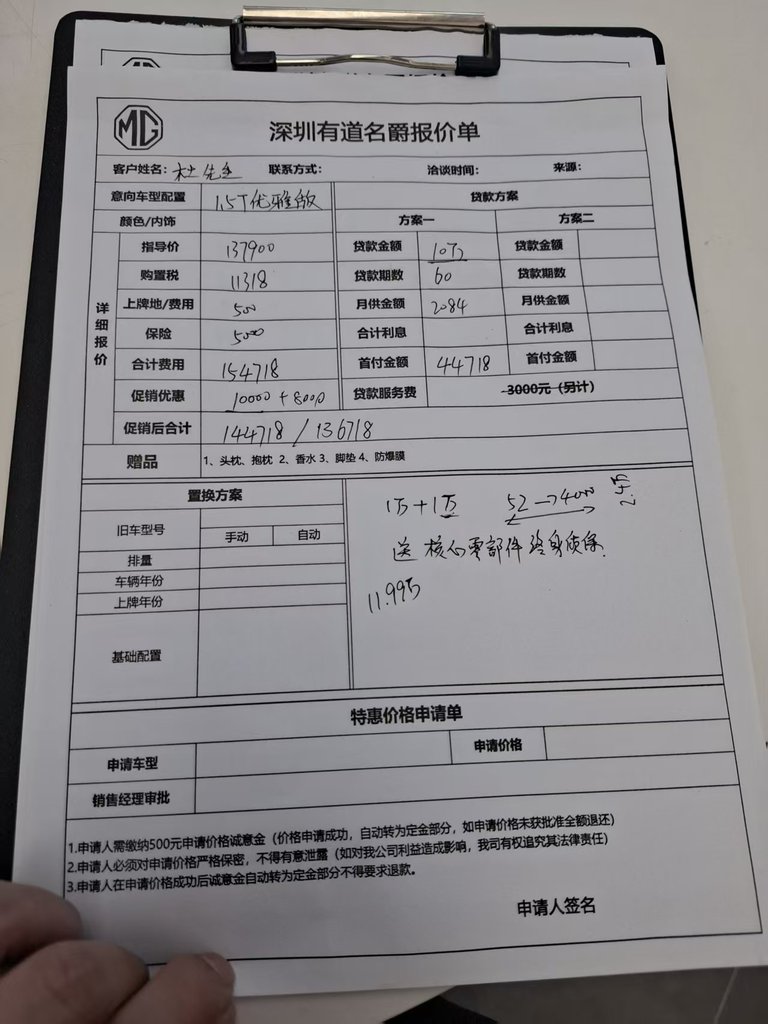 MG
深圳有道名爵报价单
客户姓名：杜先生 联系方式： 洽谈时间： 来源：
意向车型配置 1.5T优雅版 贷款方案
颜色/内饰 方案一 方案二
详细报价
指导价 137900 贷款金额 10万 贷款金额
购置税 11318 贷款期数 60 贷款期数
上牌地/费用 500 月供金额 2084 月供金额
保险 5000 合计利息 合计利息
合计费用 154718 首付金额 44718 首付金额
促销优惠 10000 + 8000 贷款服务费 3000元（另计）
促销后合计 144718 / 136718
赠品 1、头枕、抱枕 2、香水 3、脚垫 4、防爆膜
置换方案
旧车型号 手动 自动
排量
车辆年份
上牌年份
基础配置
1万+1万 52→4000
送 核心零部件 终身质保.
11.99万
特惠价格申请单
申请车型 申请价格
销售经理审批
1.申请人需缴纳500元申请价格诚意金（价格申请成功，自动转为定金部分，如申请价格未获批准全额退还）
2.申请人必须对申请价格严格保密，不得有意泄露（如对我公司利益造成影响，我司有权追究其法律责任）
3.申请人在申请价格成功后诚意金自动转为定金部分不得要求退款。
申请人签名